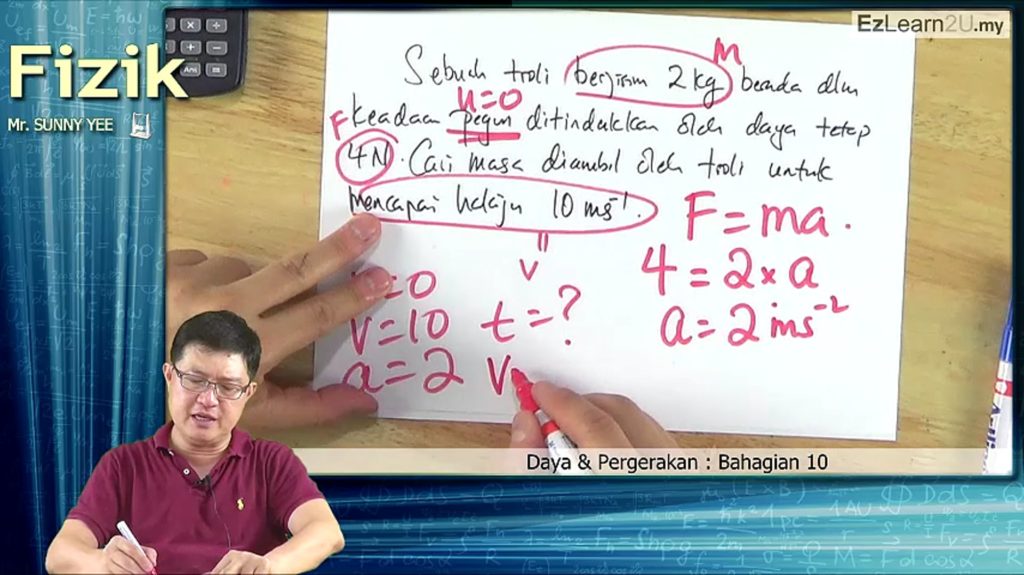 EzLearn2U.my
Fizik
Mr. SUNNY YEE
Sebuah troli berjisim 2 kg berada dlm
M
u=0
keadaan pegun ditindakkan oleh daya tetap
F
4N. Cari masa diambil oleh troli untuk
mencapai halaju 10 ms⁻¹.
v
F = ma.
4 = 2 × a
a = 2 ms⁻²
= 0
v = 10 t = ?
a = 2 v
Daya & Pergerakan : Bahagian 10